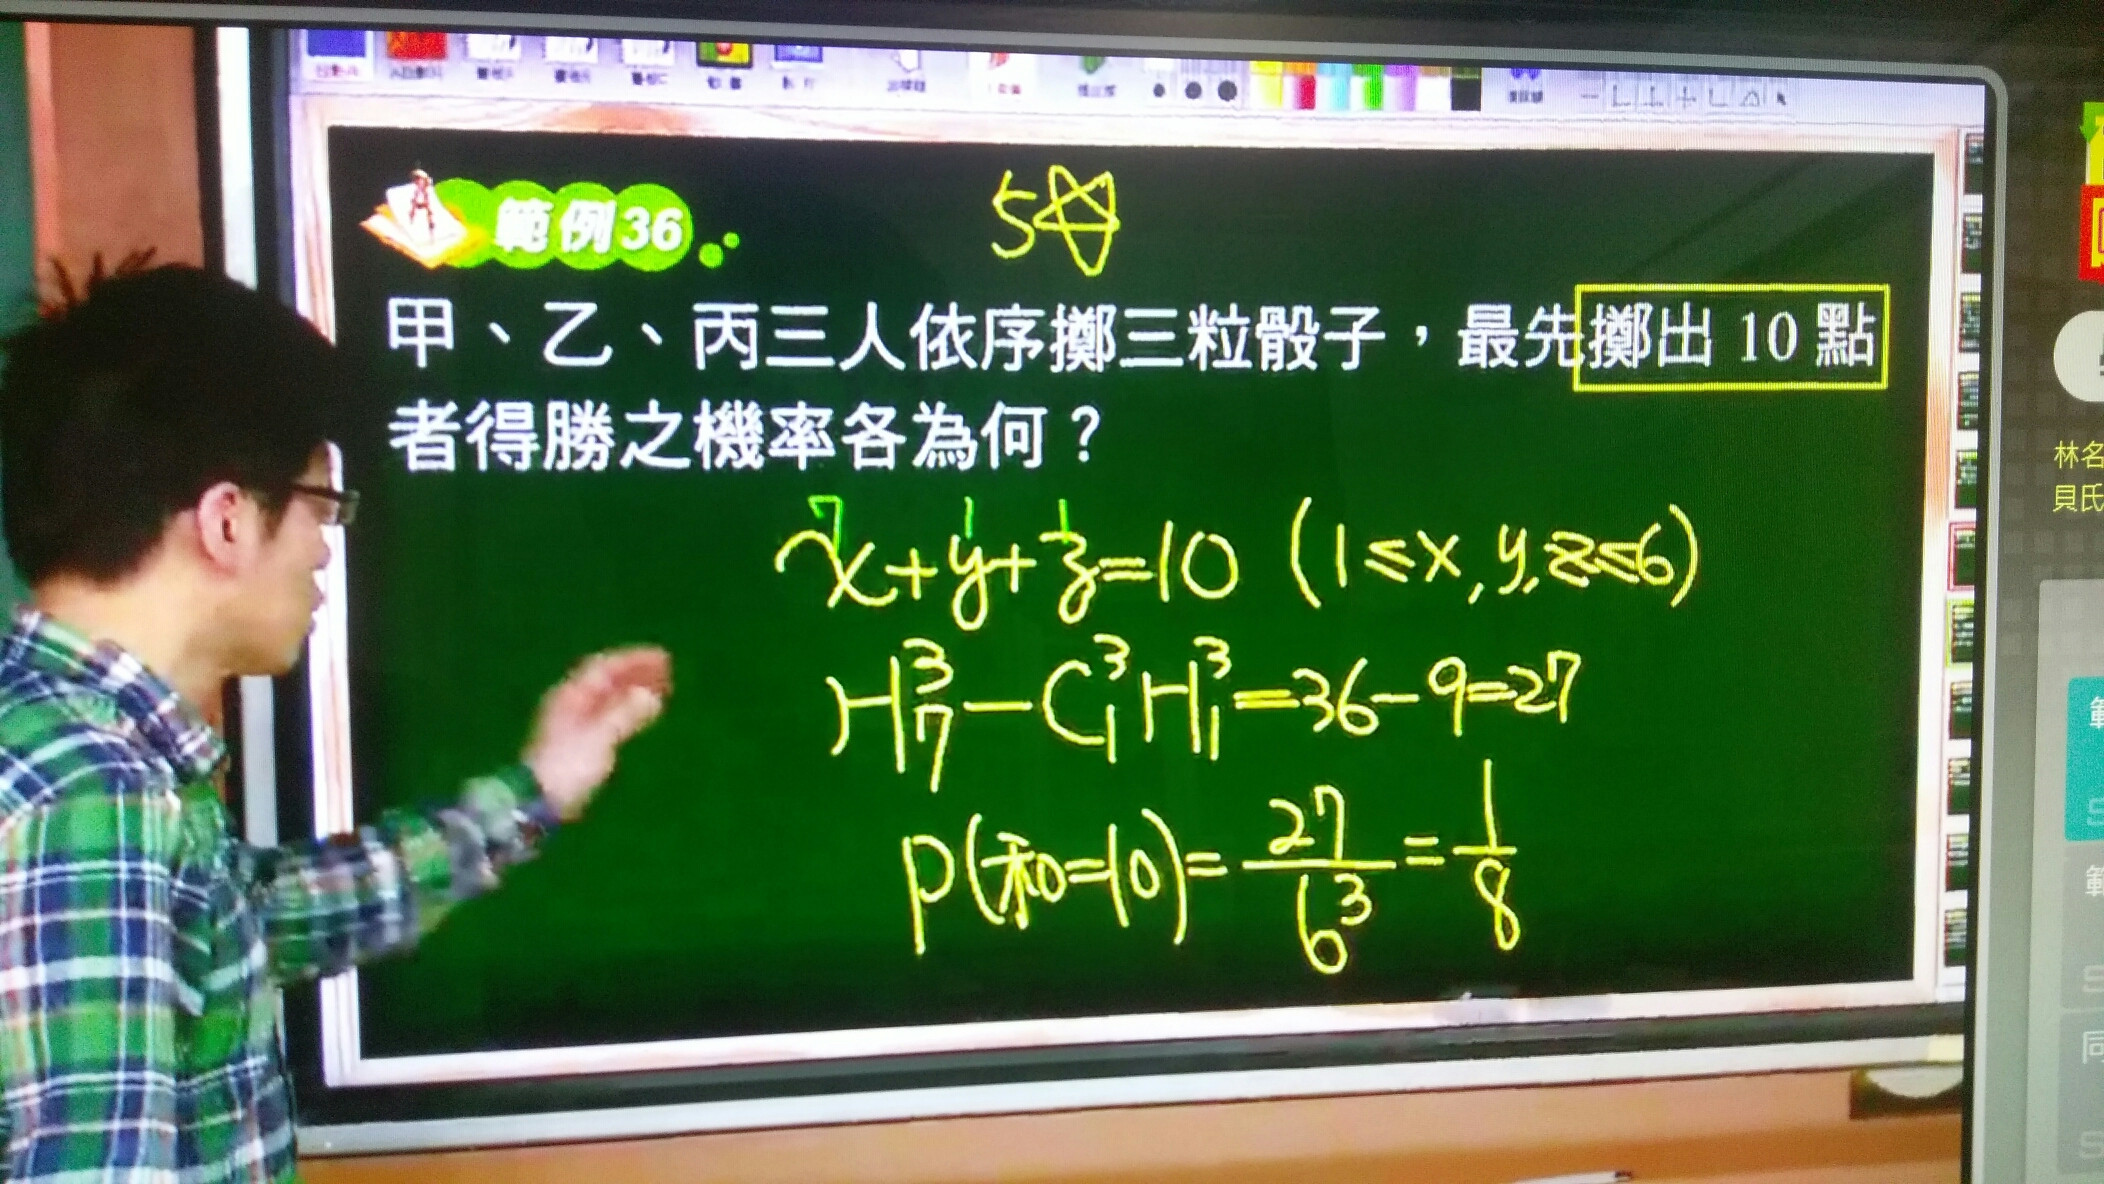 範例36
5☆
甲、乙、丙三人依序擲三粒骰子，最先擲出 10 點
者得勝之機率各為何？
7 1 1
x+y+z=10 (1≤x,y,z≤6)
H³₇-C³₁H³₁=36-9=27
P(和=10)=27/6³=1/8
林名
貝氏
範
範
同